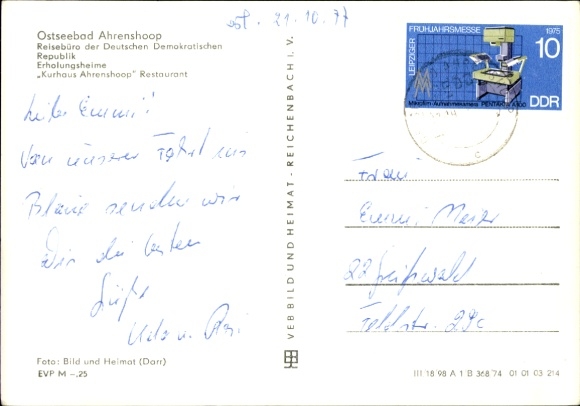 21.10.77
Ostseebad Ahrenshoop
Reisebüro der Deutschen Demokratischen
Republik
Erholungsheime
„Kurhaus Ahrenshoop" Restaurant
Liebe Emmi!
Von unserer Fahrt ins
Blaue senden wir
Dir die besten
Grüße
Udo u.
Foto: Bild und Heimat (Darr)
EVP M –,25
VEB BILD UND HEIMAT · REICHENBACH I. V.
LEIPZIGER FRÜHJAHRSMESSE 1975
10
Mikrofilm-Aufnahmekamera PENTAKTA A100
DDR
Frau
Emmi Meier
22 Greifswald
Feldstr. 29c
III 18 98 A 1 B 368 74 01 01 03 214